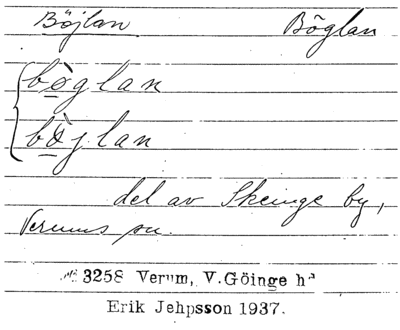 Böjlan Böglan
bòglan
bòjlan
del av Skeinge by,
Verums sn.
3258 Verum, V.Göinge hd
Erik Jehpsson 1937.